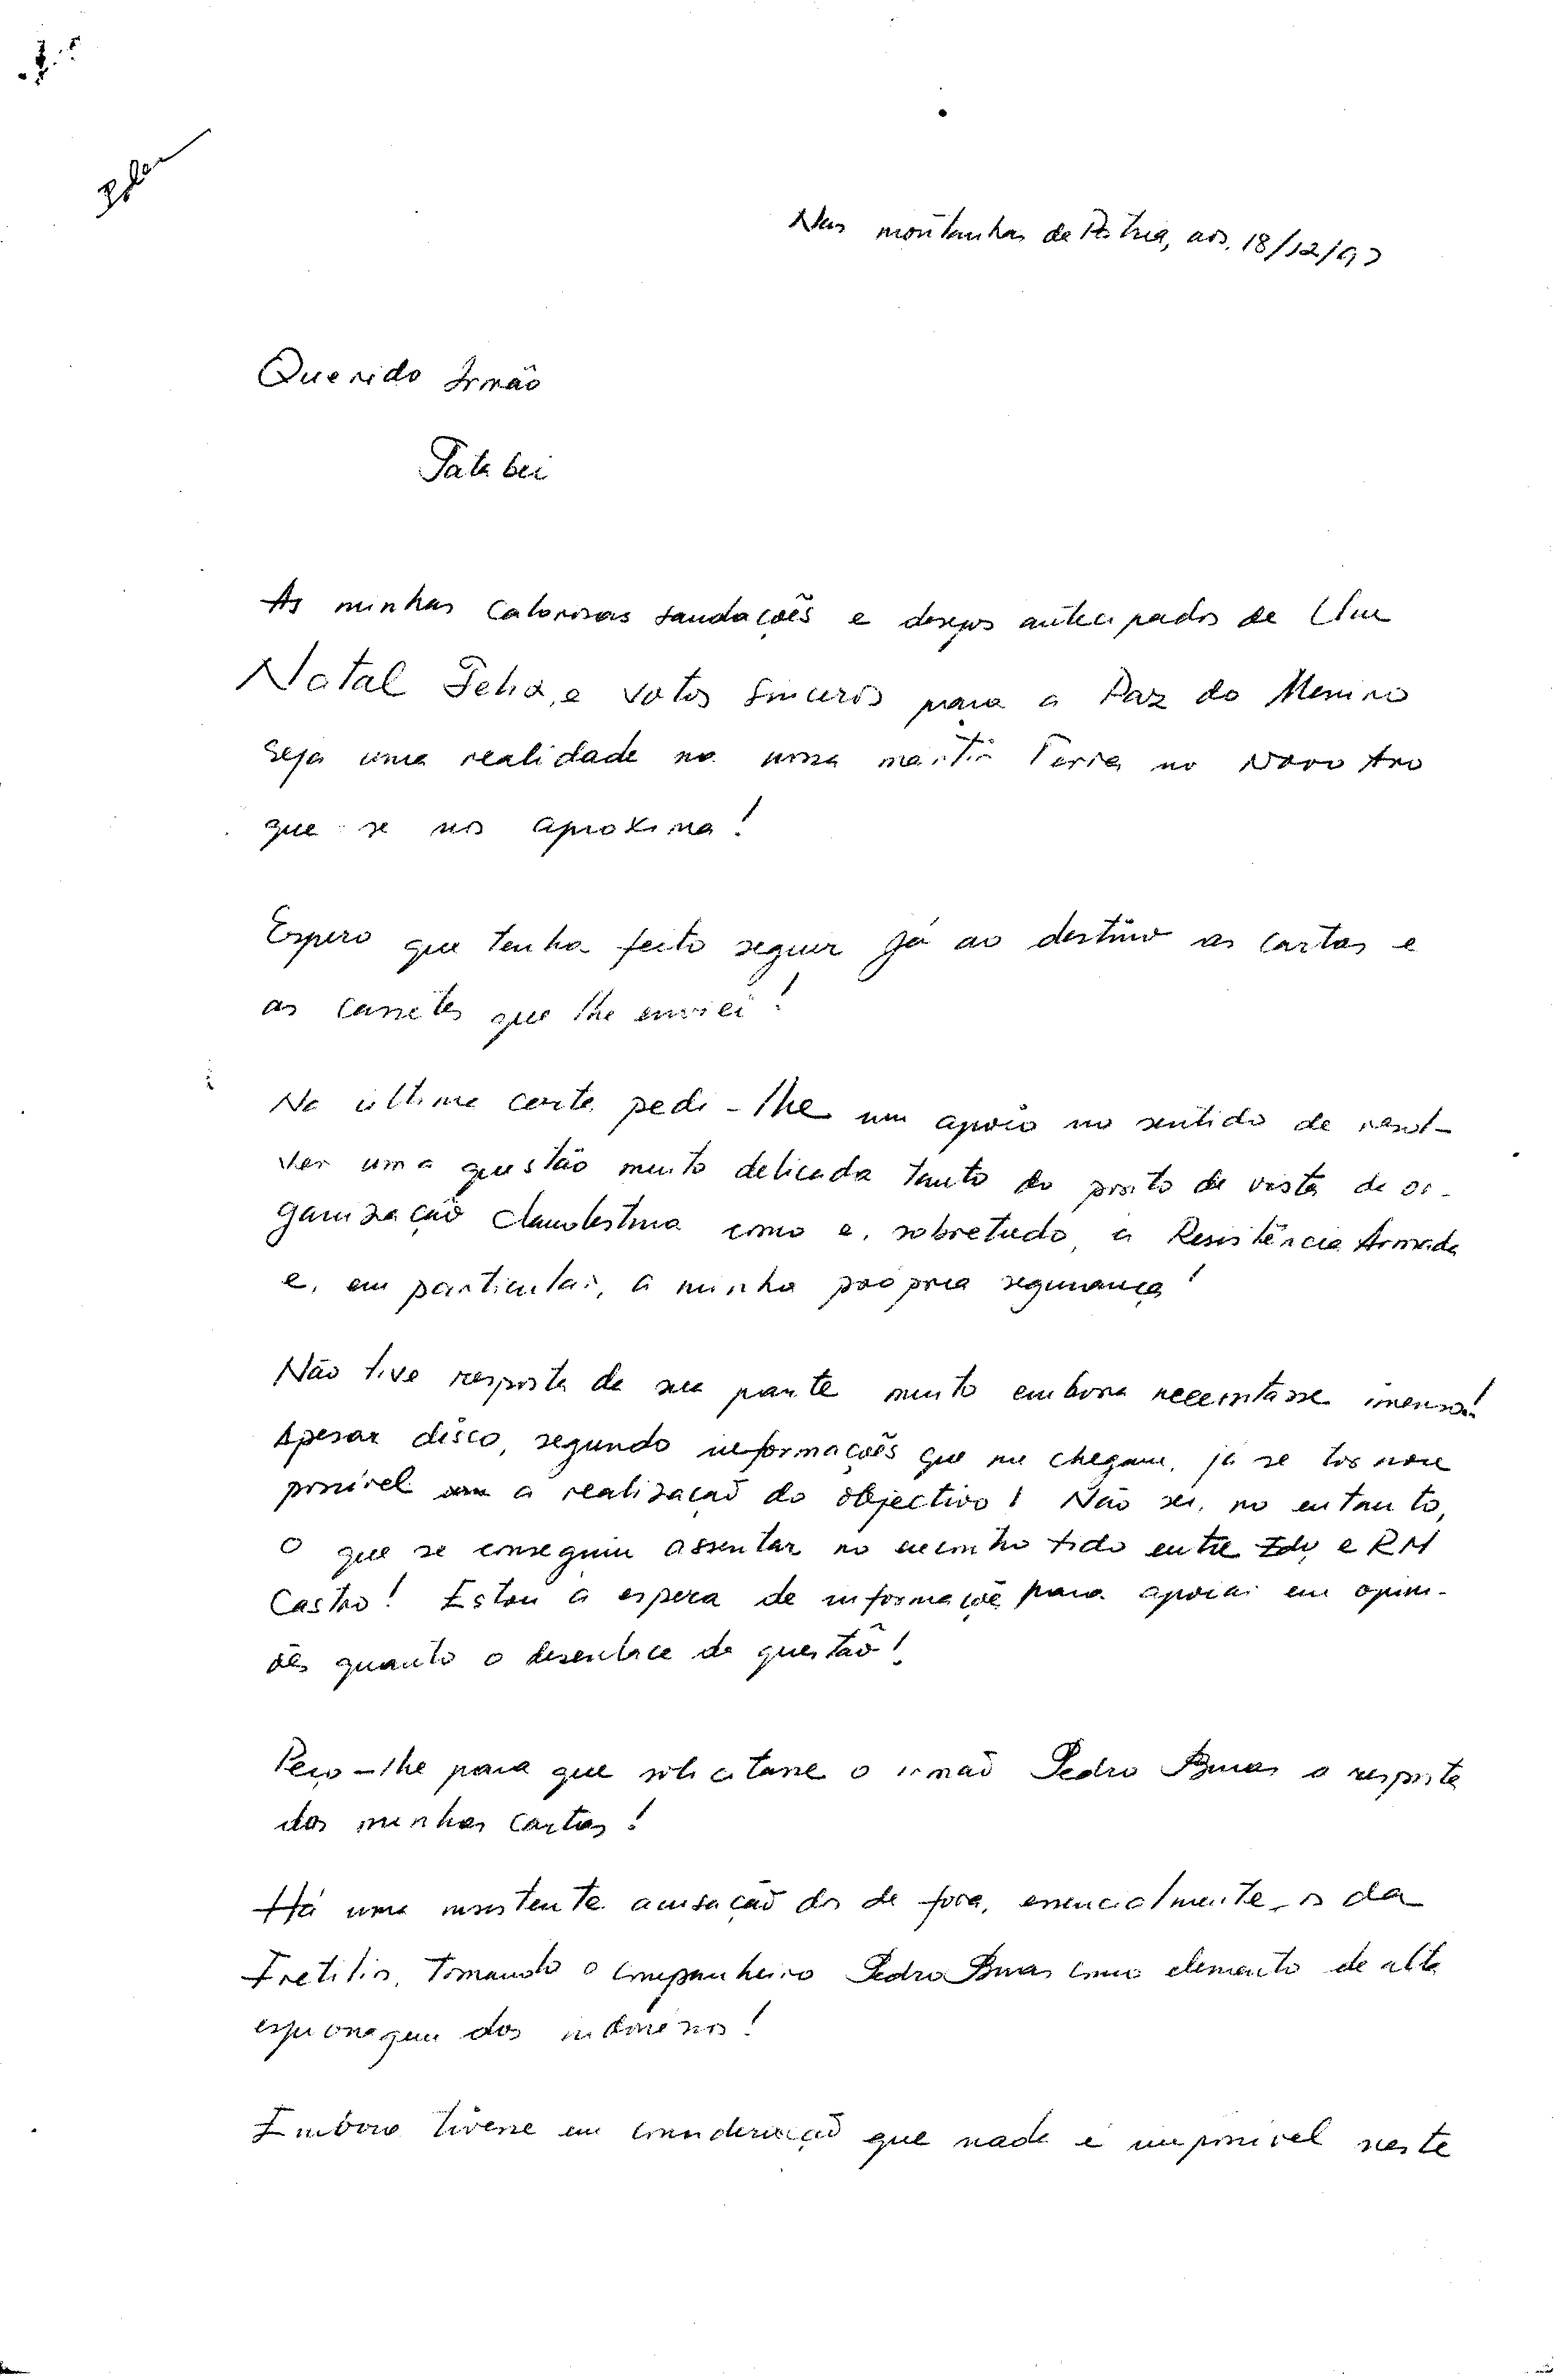 Nas montanhas da Pátria, aos, 18/12/97
Querido Irmão
Tata bei
As minhas calorosas saudações e desejos antecipados de Um
Natal Feliz, e votos sinceros para a Paz do Menino
seja uma realidade na nossa mártir Terra no Novo Ano
que se nos aproxima!
Espero que tenha feito seguir já ao destino as cartas e
as cassetes que lhe enviei!
Na última carta pedi-lhe um apoio no sentido de resol-
ver uma questão muito delicada tanto do ponto de vista da or-
ganização clandestina como e, sobretudo, a Resistência Armada
e, em particular, a minha própria segurança!
Não tive resposta da sua parte muito embora necessitasse imenso!
Apesar disco, segundo informações que me chegam, já se tornou
possível a realização do objectivo! Não sei, no entanto,
o que se conseguiu assentar no encontro tido entre Edy e RM
Castro! Estou a espera de informações para apoiar em opini-
ões quanto o desenlace da questão!
Peço-lhe para que solicitasse o irmão Pedro a resposta
das minhas cartas!
Há uma insistente acusação dos de fora, essencialmente, os da
Fretilin, tomando o companheiro Pedro como elemento de alta
espionagem dos indonésios!
Embora tivesse em consideração que nada é impossível neste